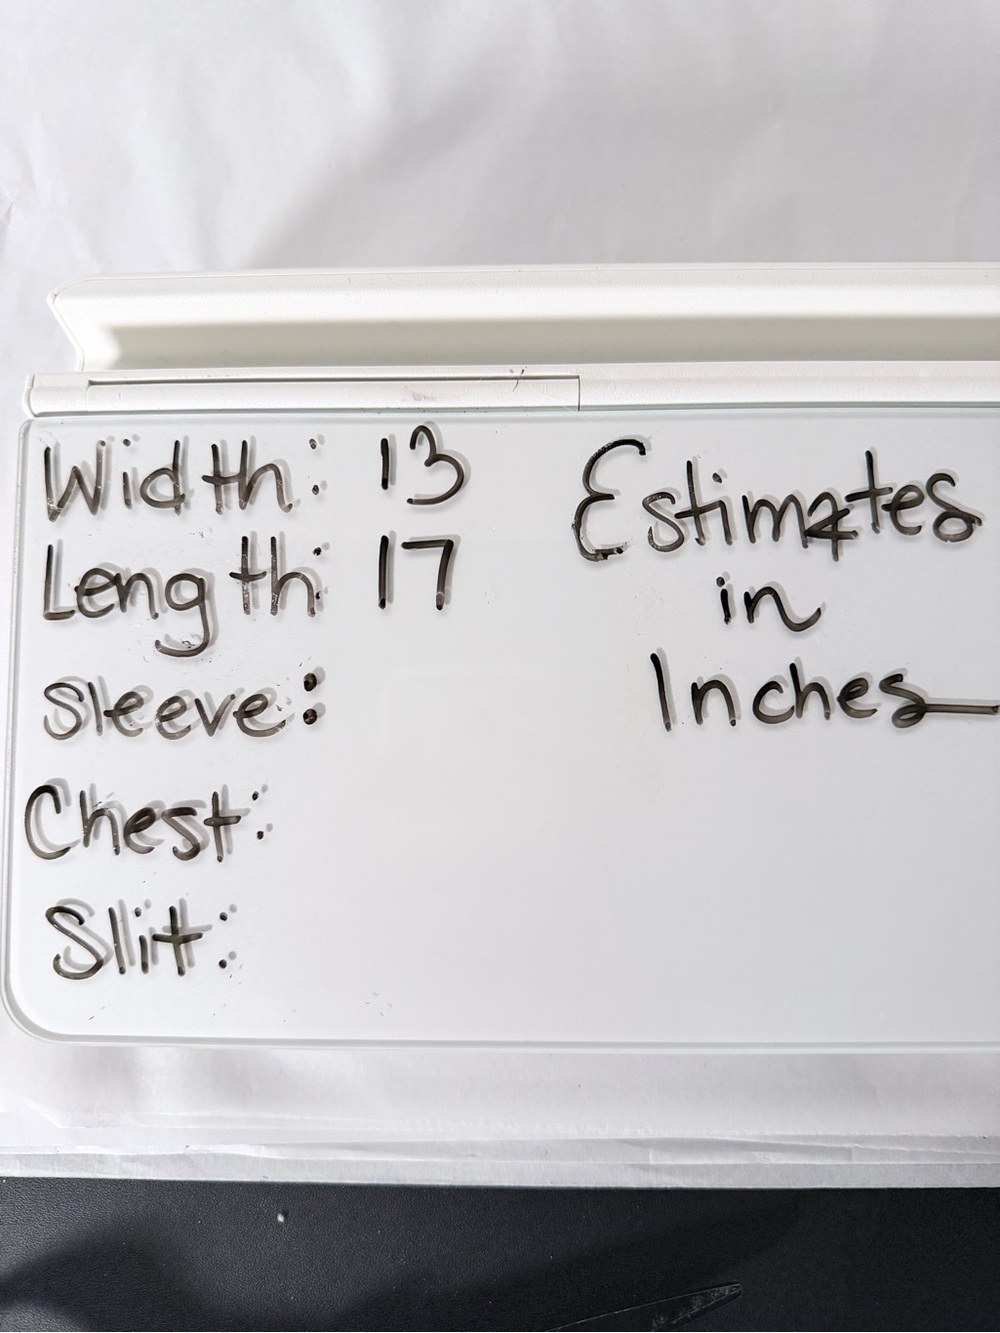 Width: 13
Length: 17
Sleeve:
Chest:
Slit:
Estimates
in
Inches